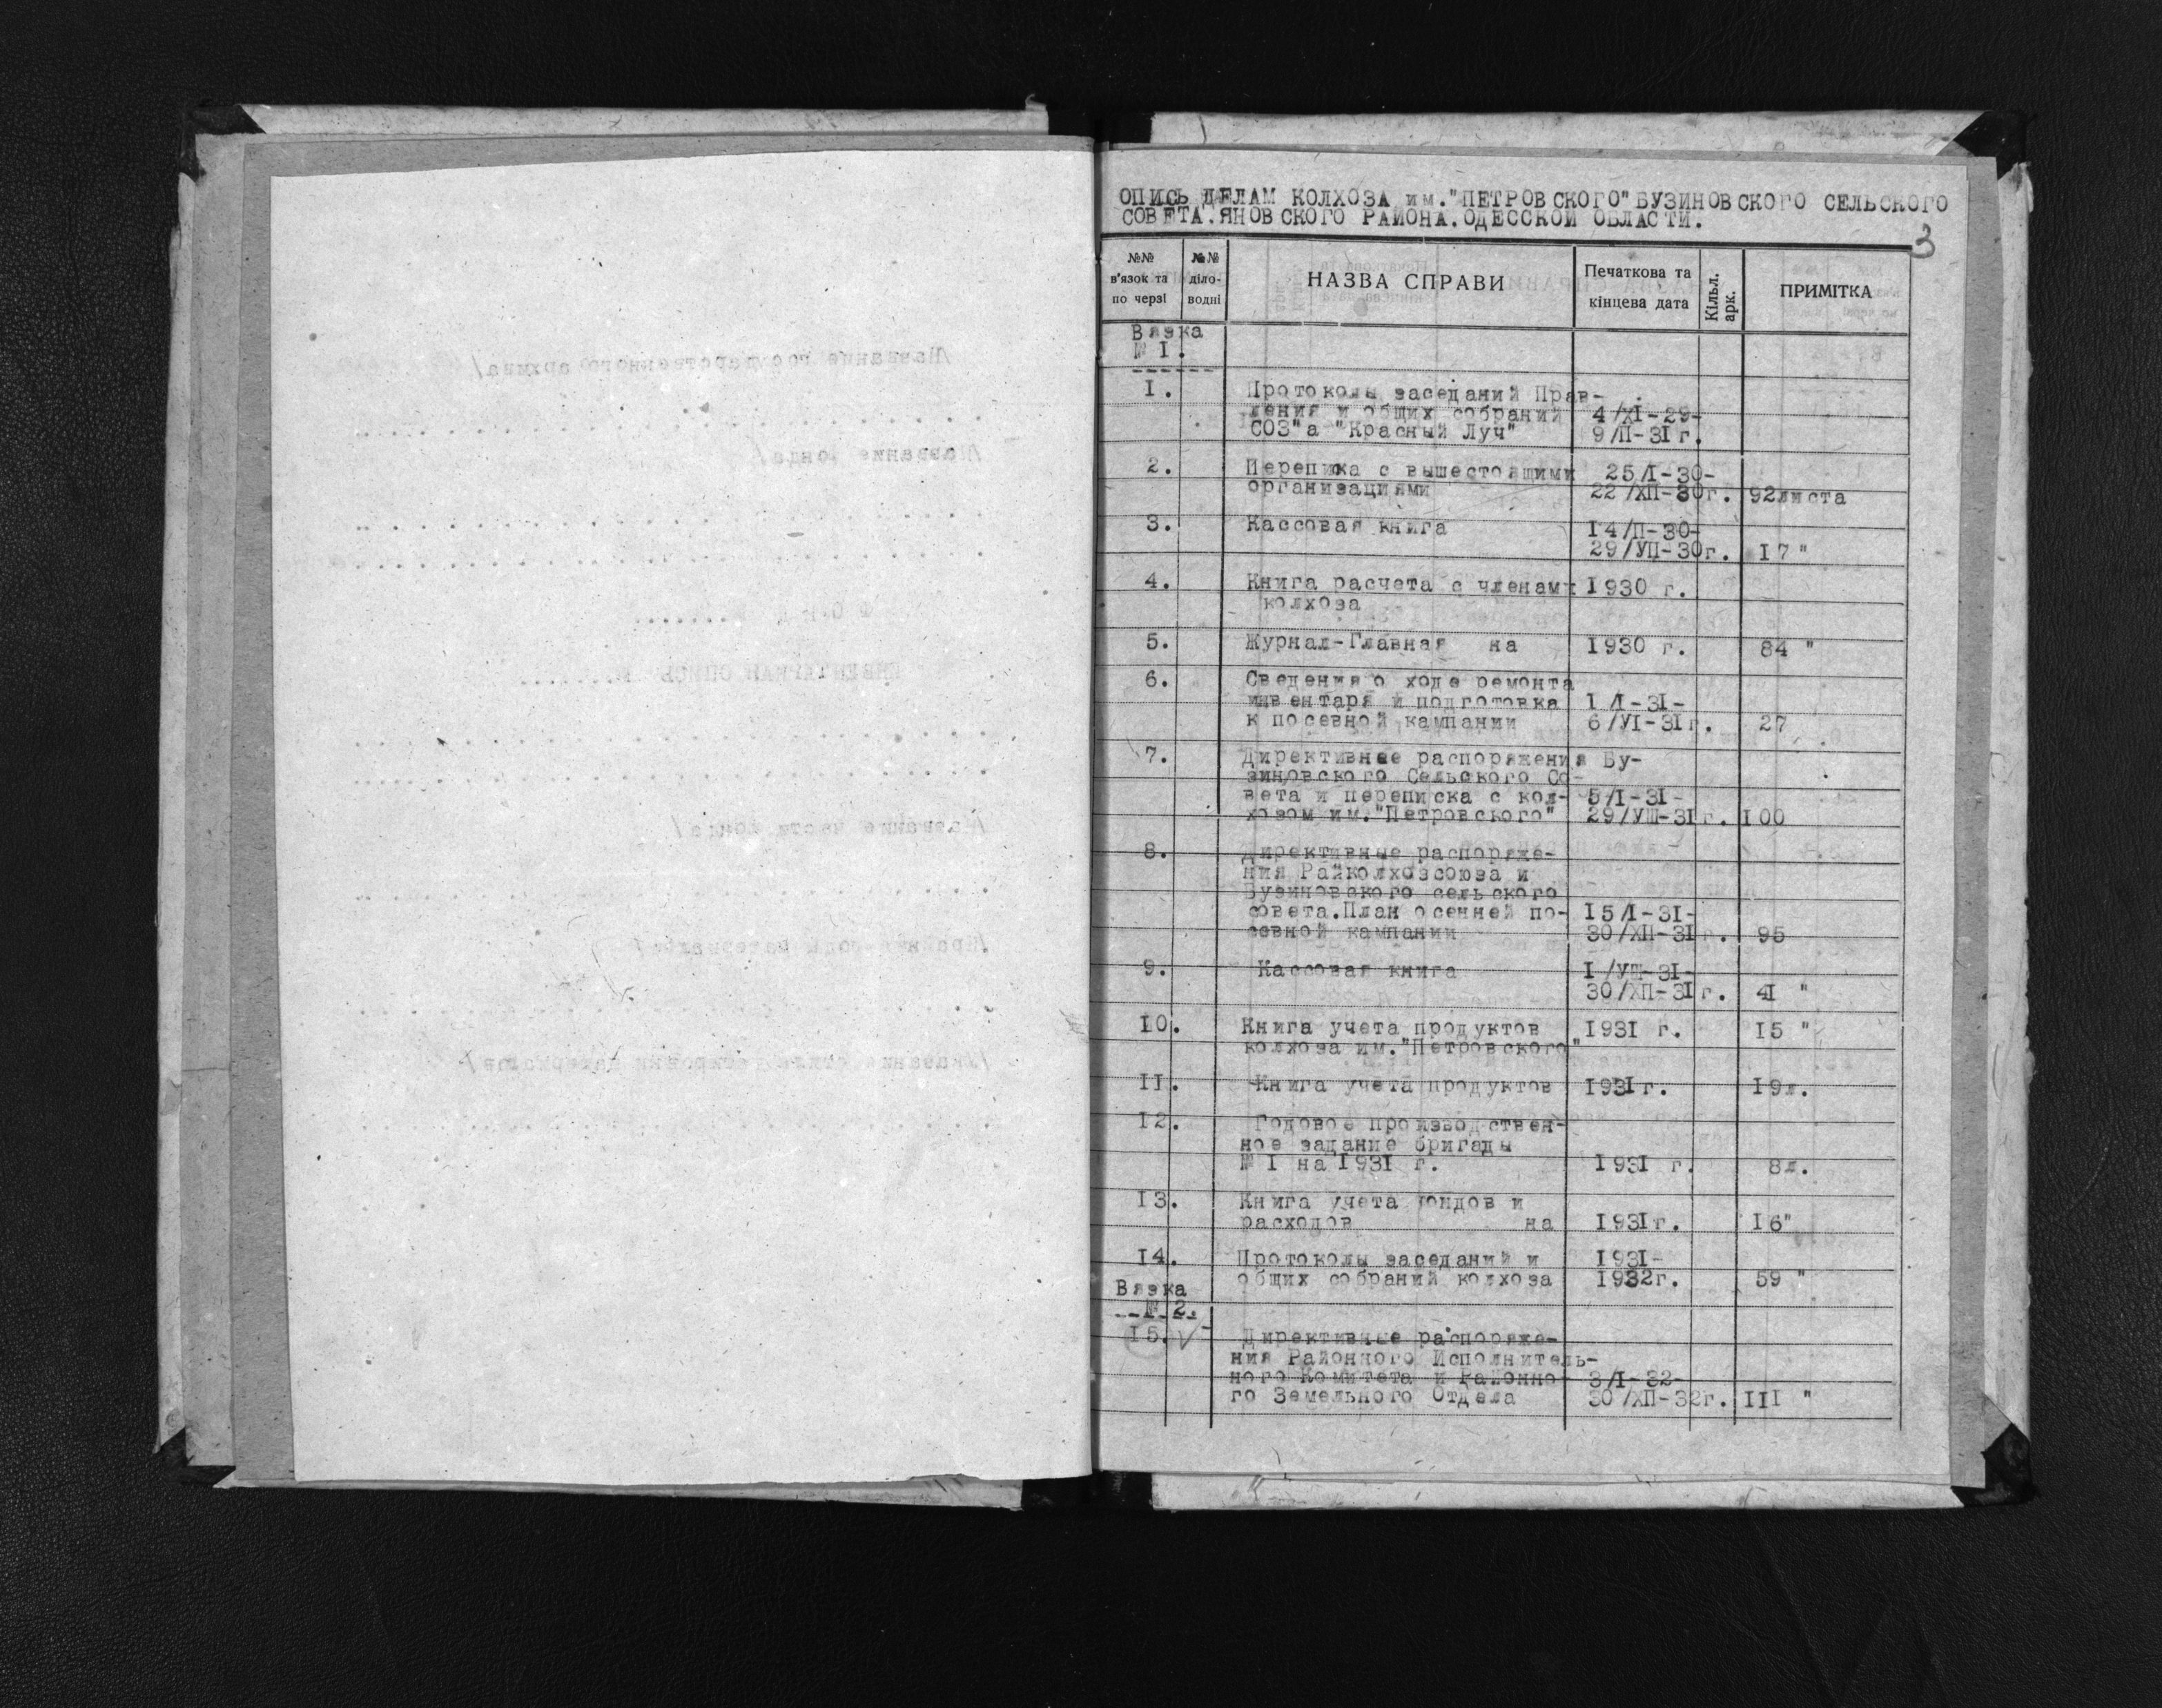 ОПИСЬ ДЕЛАМ КОЛХОЗА им."ПЕТРОВСКОГО" БУЗИНОВСКОГО СЕЛЬСКОГО
СОВЕТА.ЯНОВСКОГО РАЙОНА.ОДЕССКОЙ ОБЛАСТИ.
3
№№ в'язок та по черзі
№№ діло-водні
НАЗВА СПРАВИ
Печаткова та кінцева дата
Кільк. арк.
ПРИМІТКА
Вязка
№ I.
I. Протоколы заседаний Прав-
ления и общих собраний 4/XI-29-
СОЗ"а "Красный Луч" 9/П-31г.
2. Переписка с вышестоящими 25/I-30-
организациями 22/ХП-30г. 92листа
3. Кассовая книга 14/П-30-
29/УП-30г. 17 "
4. Книга расчета с членами 1930 г.
колхоза
5. Журнал-Главная на 1930 г. 84 "
6. Сведения о ходе ремонта
инвентаря и подготовка 1/I-31-
к посевной кампании 6/УI-31г. 27
7. Директивные распоряжения Бу-
зиновского Сельского Со-
вета и переписка с кол- 5/I-31-
хозом им."Петровского" 29/УШ-31г. 100
8. Директивные распоряже-
ния Райколхозсоюза и
Бузиновского сельского
совета.План осенней по- 15/I-31-
севной кампании 30/ХП-31г. 95
9. Кассовая книга I/УШ-31-
30/ХП-31г. 41 "
10. Книга учета продуктов 1931 г. 15 "
колхоза им."Петровского"
11. Книга учета продуктов 1931г. 19л.
12. Годовое производствен-
ное задание бригады
№ I на 1931 г. 1931 г. 8л.
13. Книга учета фондов и
расходов на 1931г. 16"
14. Протоколы заседаний и 1931-
общих собраний колхоза 1932г. 59 "
Вязка
№ 2.
15. V Директивные распоряже-
ния Районного Исполнитель-
ного Комитета и Районно- 3/I-32-
го Земельного Отдела 30/ХП-32г. III "